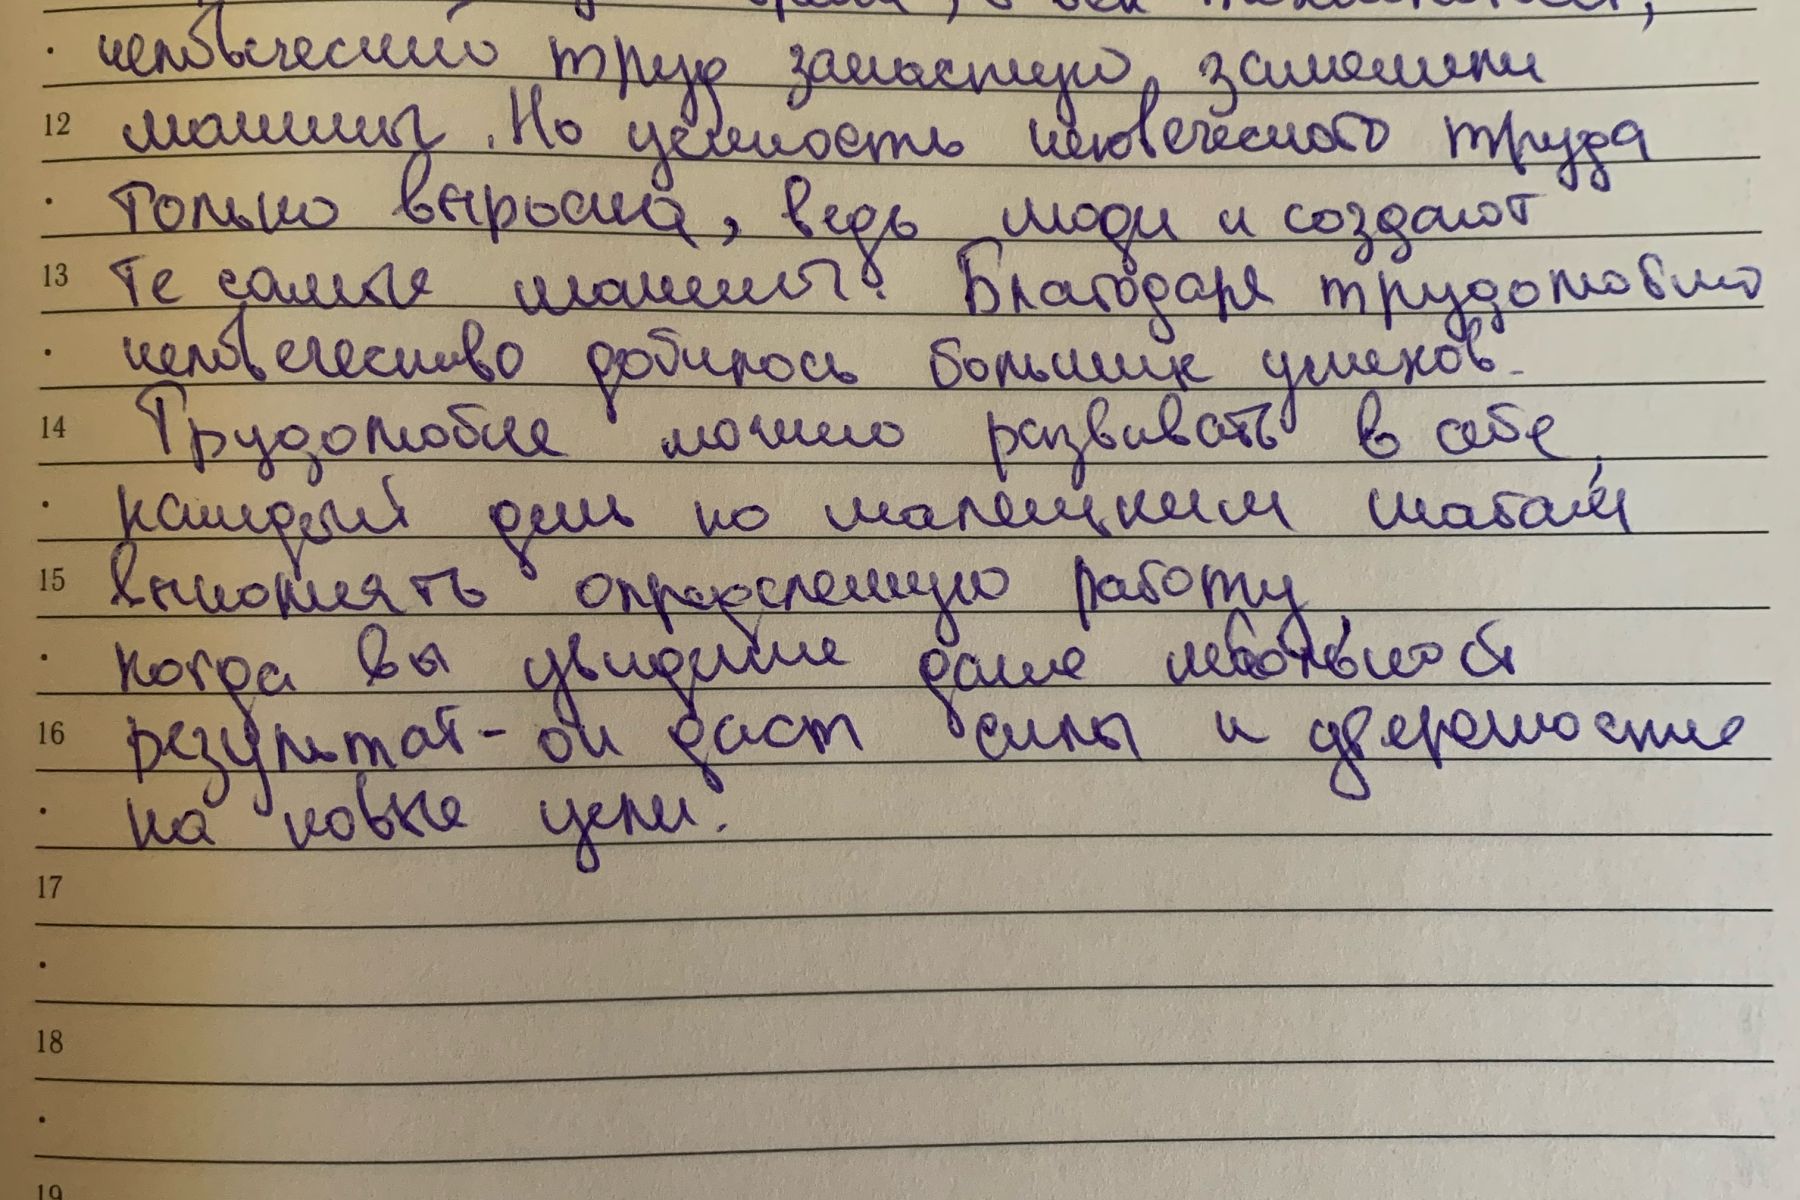 время, в век технологий,
человеческий труд зачастую заменили
12 машины. Но ценность человеческого труда
только выросла, ведь люди и создают
13 те самые машины! Благодаря трудолюбию
человечество добилось больших успехов.
14 Трудолюбие можно развивать в себе,
каждый день по малец​ким шагам
15 выполнять определенную работу,
когда вы увидите даже небольшой
16 результат - он даст силы и
на новые цели.
17
18
19